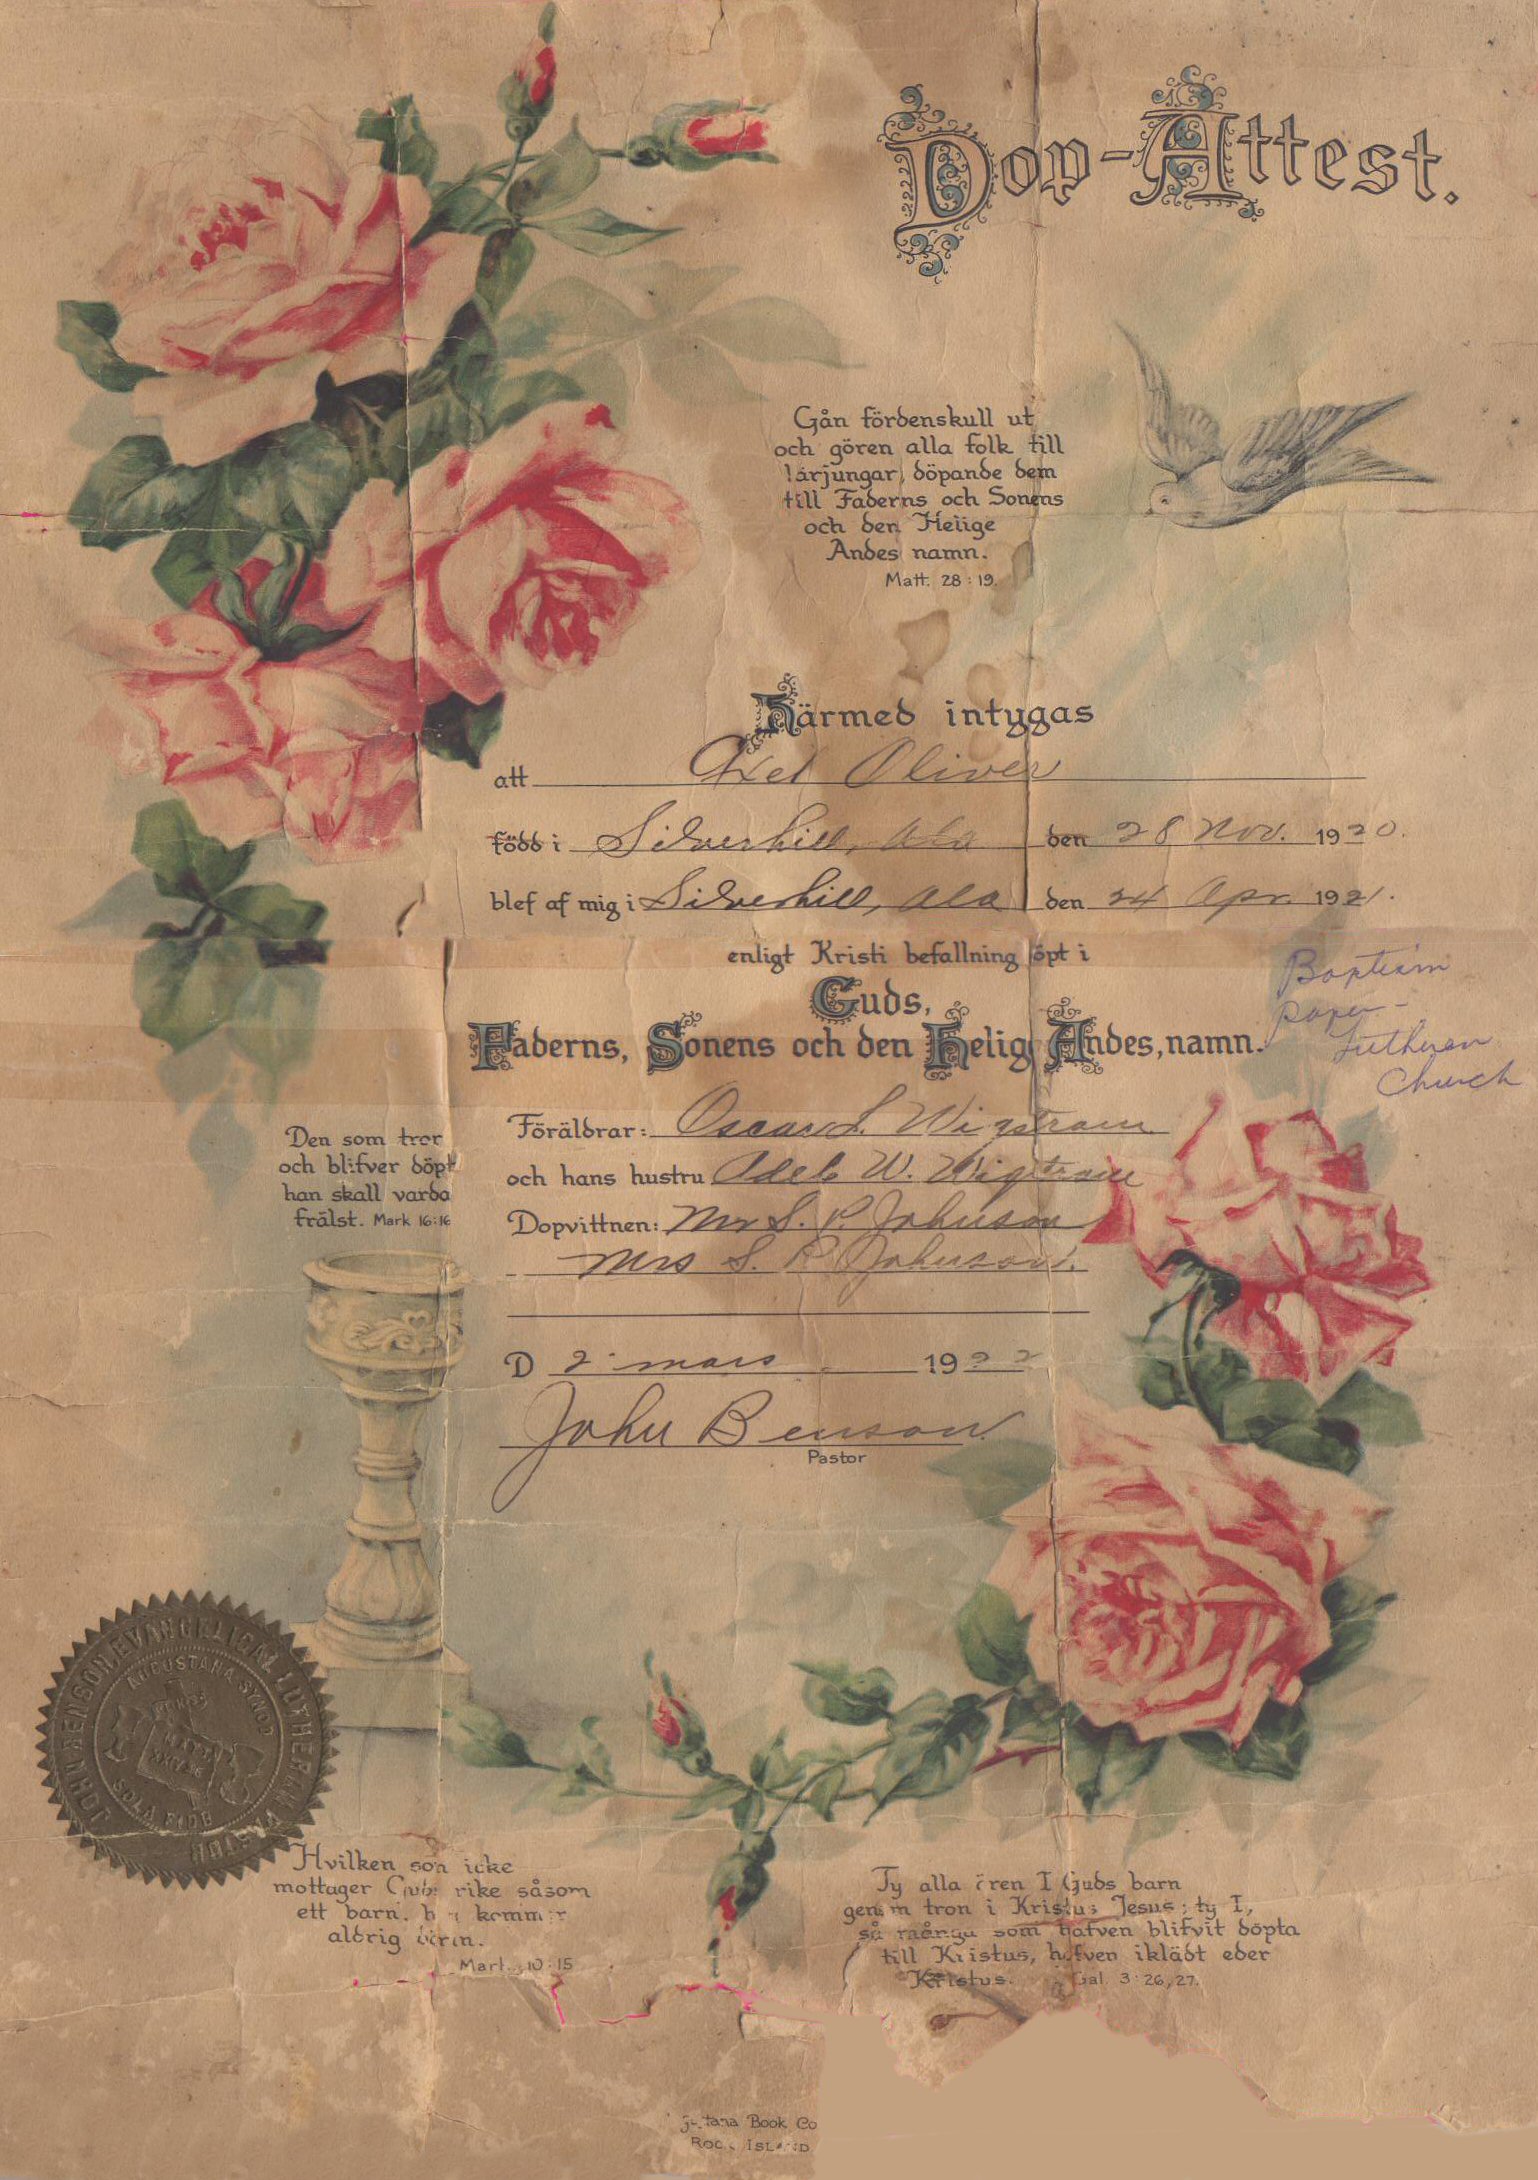 Dop-Attest.
Gån fördenskull ut
och gören alla folk till
lärjungar, döpande dem
till Faderns och Sonens
och den Helige
Andes namn.
Matt. 28:19.
Härmed intygas
att Axel Oliver
född i Silverhill, Ala den 28 Nov. 1920.
blef af mig i Silverhill, Ala den 24 Apr. 1921.
enligt Kristi befallning öpt i
Guds,
Faderns, Sonens och den Helig Andes, namn.
Baptism
paper-
Lutheran
Church
Föräldrar: Oscar L. Wigstrom
och hans hustru W. Wigstrom
Dopvittnen: Mr S. P. Johnson
Mrs S. P. Johnson.
Den som tror
och blifver döpt
han skall varda
frälst. Mark 16:16
D 2 mars 1922
John Benson
Pastor
JOHN BENSON, EVANGELICAL LUTHERAN PASTOR
AUGUSTANA SYNOD
SOLA FIDE
Hvilken som icke
mottager Guds rike såsom
ett barn, han kommer
aldrig derin.
Mark. 10:15
Ty alla ären I Guds barn
genom tron i Kristus Jesus; ty I,
så många som hafven blifvit döpta
till Kristus, hafven iklädt eder
Kristus. Gal. 3:26,27.
tana Book Co
Rock Island